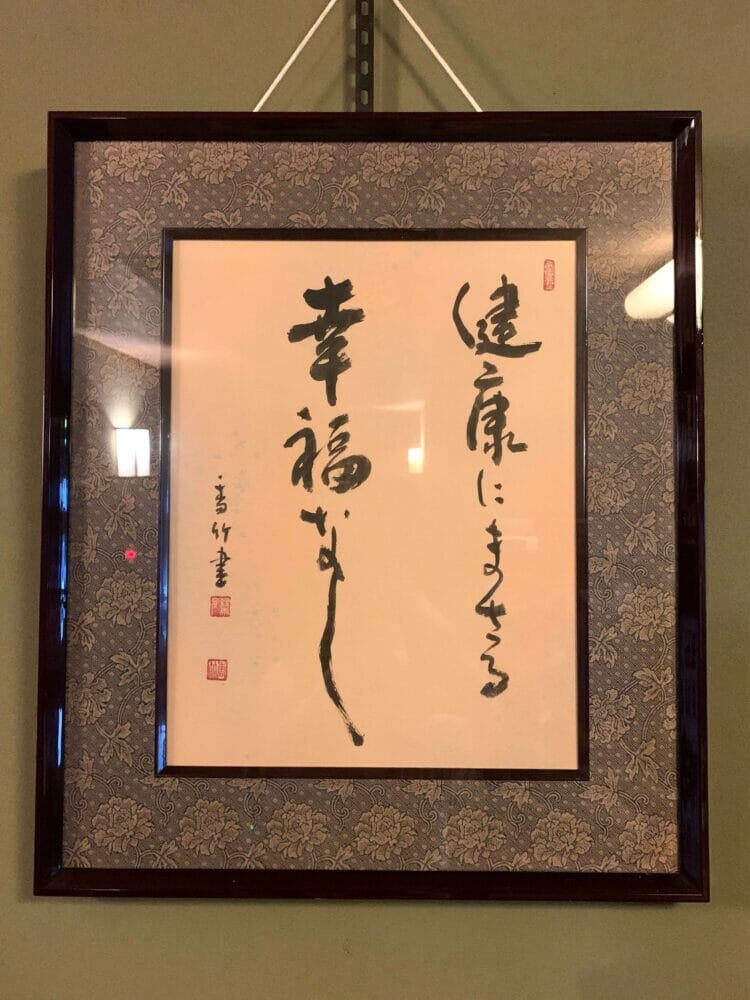 健康にまさる
幸福なし
香竹書